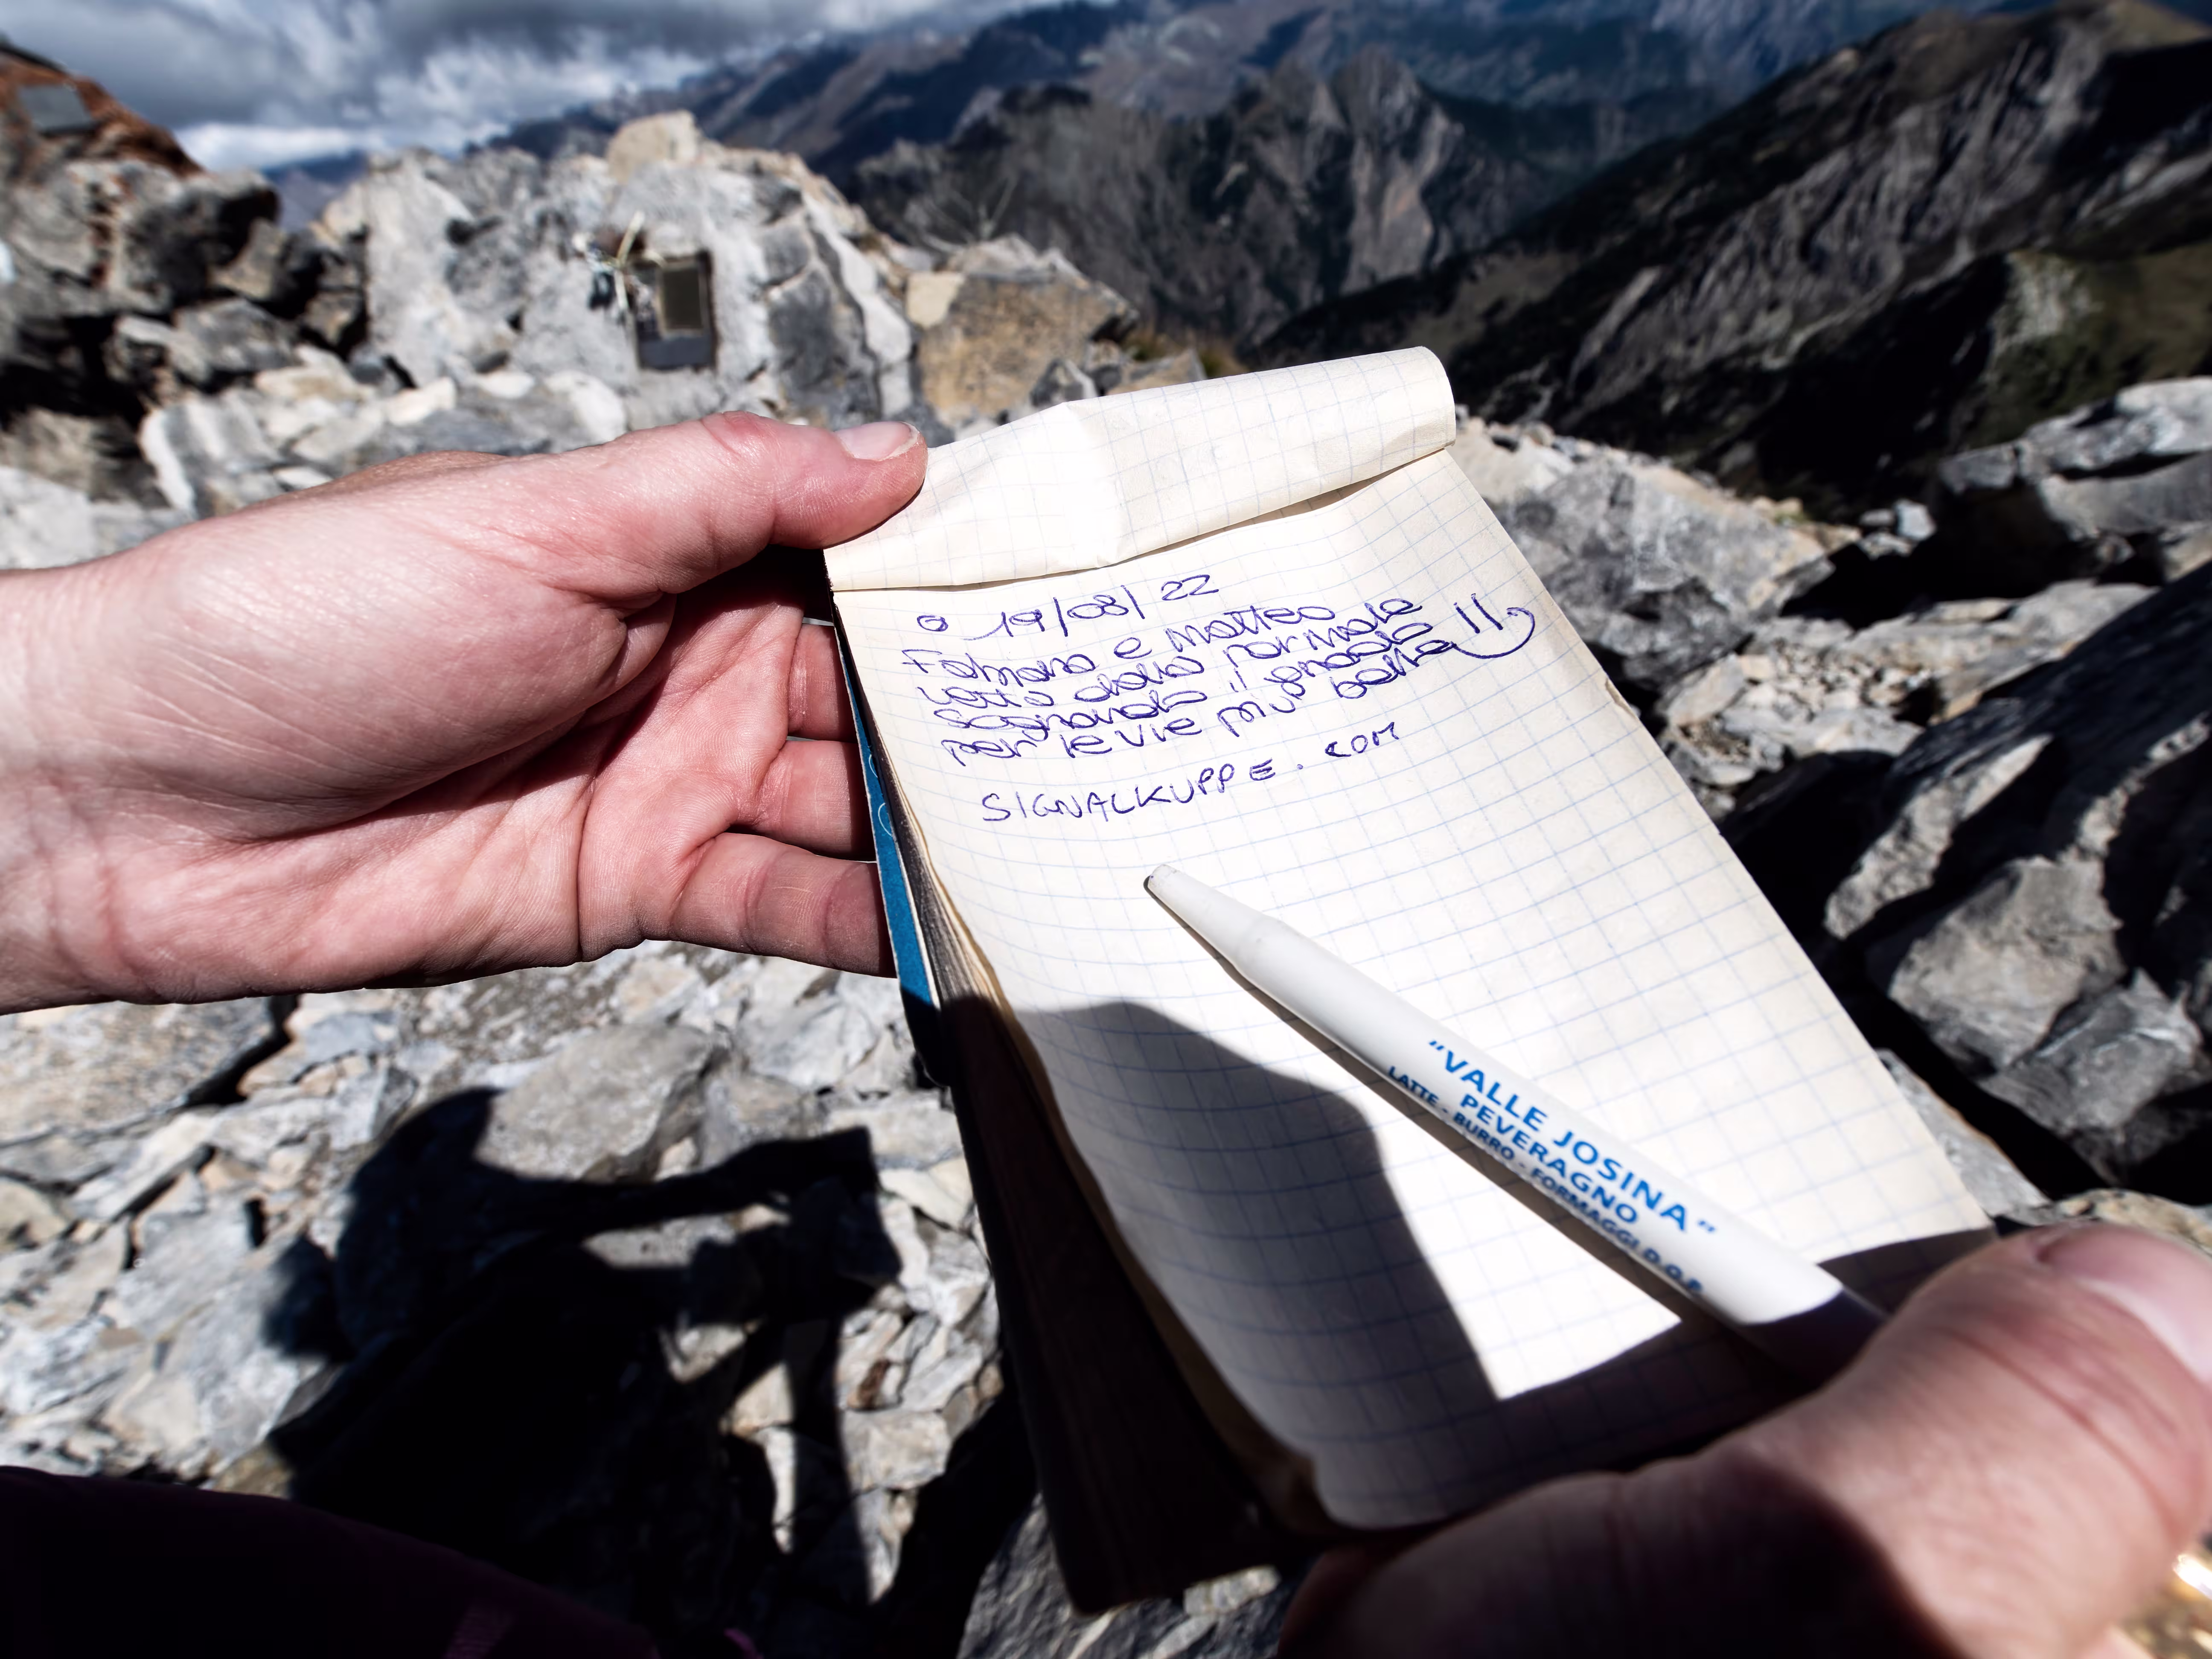 19/08/22
Fabiana e Matteo
vetta dalla normale
sognando il grado
per le vie più belle
SIGNALKUPPE.COM
"VALLE JOSINA"
PEVERAGNO
LATTE - BURRO - FORMAGGI D.O.P.